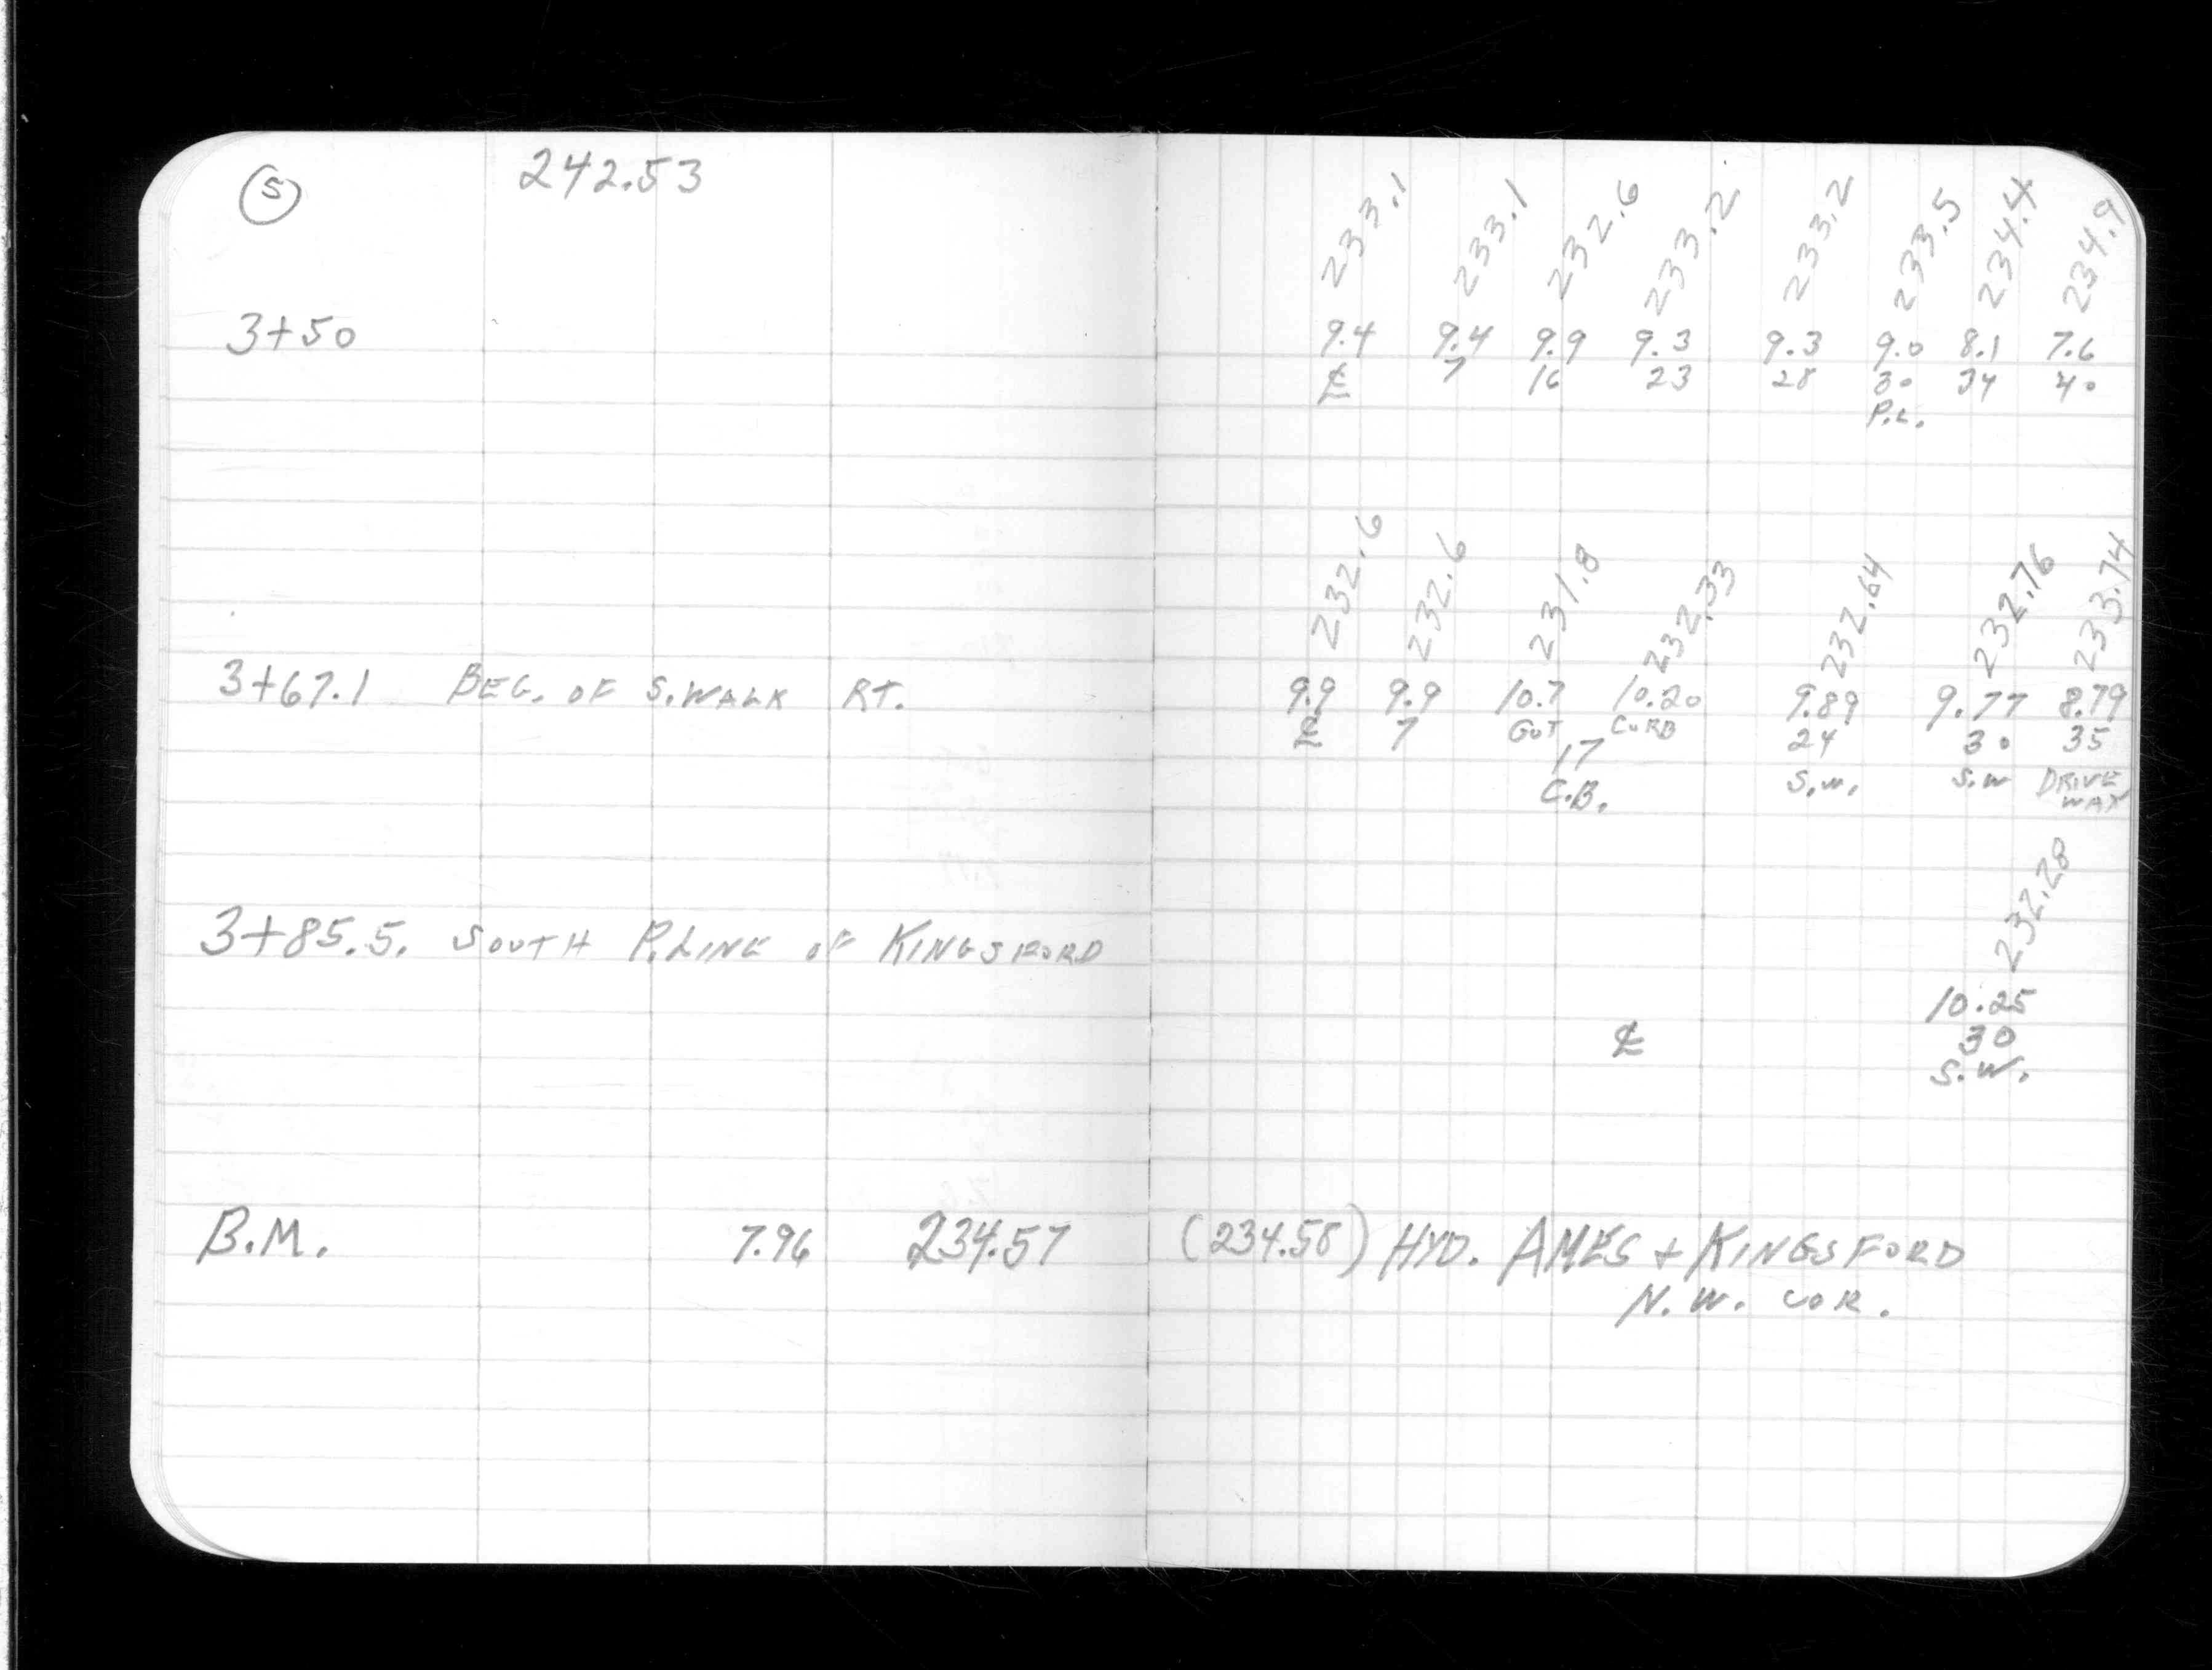 5 242.53
233.1 233.1 232.6 233.2 233.2 233.5 234.4 234.9
3+50 9.4 9.4 9.9 9.3 9.3 9.0 8.1 7.6
℄ 7 16 23 28 30 34 40
P.L.
232.6 232.6 231.8 232.33 232.64 232.76 233.74
3+67.1 BEG. OF S.WALK RT. 9.9 9.9 10.7 10.20 9.89 9.77 8.79
℄ 7 GUT CURB 24 30 35
17 S.W. S.W DRIVE
C.B. WAY
232.28
3+85.5. SOUTH P.LINE OF KINGSFORD
10.25
℄ 30
S.W.
B.M. 7.96 234.57 (234.58) HYD. AMES + KINGSFORD
N.W. COR.